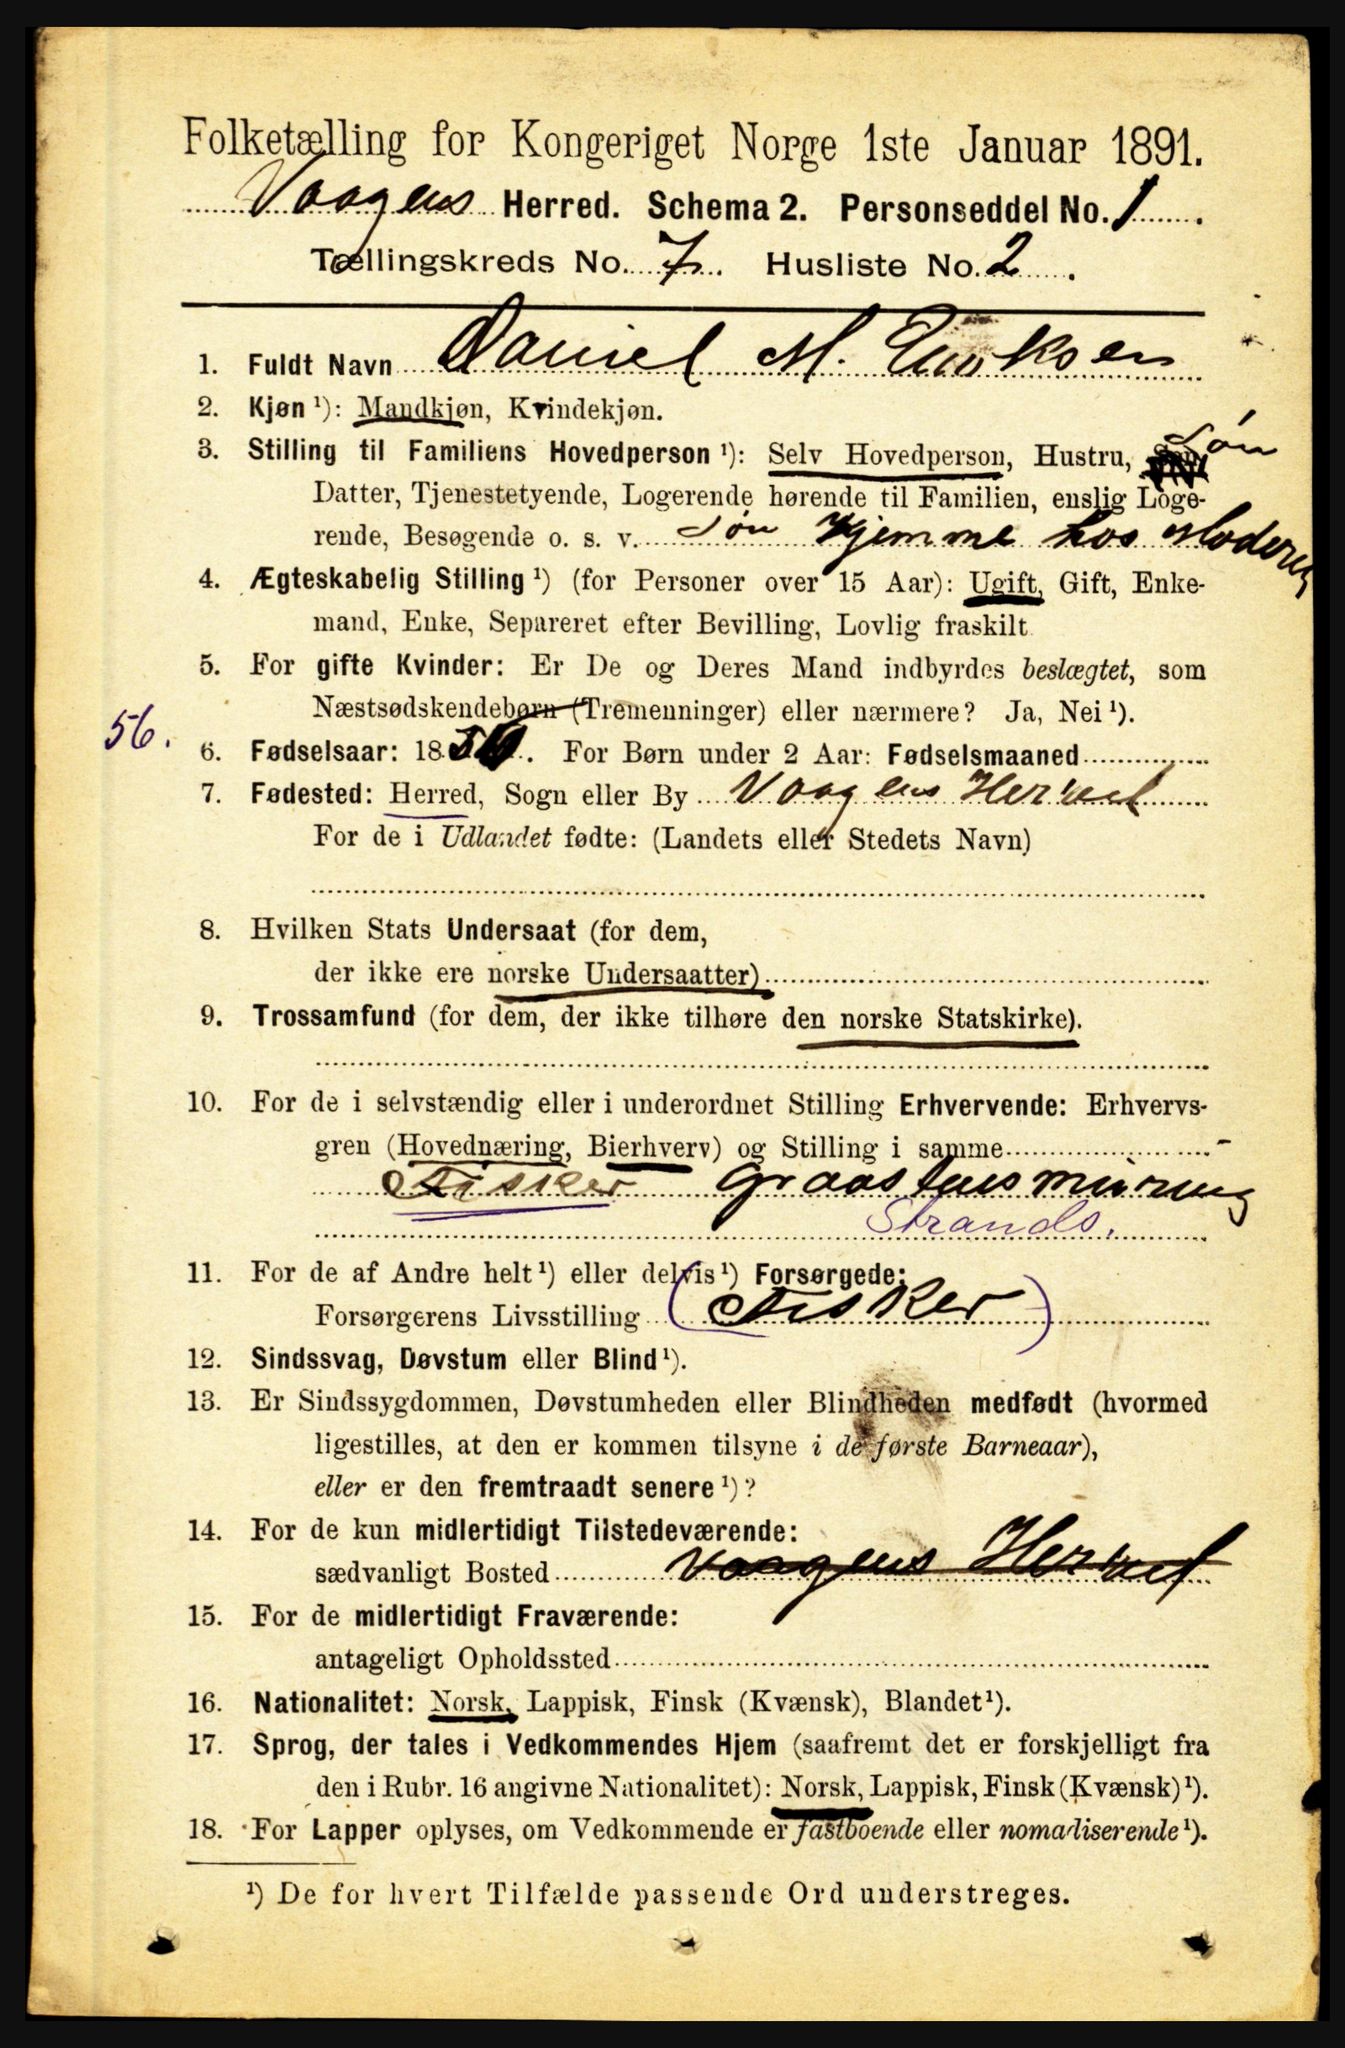 Folketælling for Kongeriget Norge 1ste Januar 1891.
Vaagens Herred. Schema 2. Personseddel No. 1.
Tællingskreds No. 7. Husliste No. 2.
1. Fuldt Navn Daniel M.
2. Kjøn ¹): Mandkjøn, Kvindekjøn.
Søn
3. Stilling til Familiens Hovedperson ¹): Selv Hovedperson, Hustru, Søn
Datter, Tjenestetyende, Logerende hørende til Familien, enslig Loge-
rende, Besøgende o. s. v. Søn Hjemme hos Moderen
4. Ægteskabelig Stilling ¹) (for Personer over 15 Aar): Ugift, Gift, Enke-
mand, Enke, Separeret efter Bevilling, Lovlig fraskilt
5. For gifte Kvinder: Er De og Deres Mand indbyrdes beslægtet, som
Næstsødskendebørn (Tremenninger) eller nærmere? Ja, Nei ¹).
56.
6. Fødselsaar: 1856. For Børn under 2 Aar: Fødselsmaaned
7. Fødested: Herred, Sogn eller By Vaagens Herred
For de i Udlandet fødte: (Landets eller Stedets Navn)
8. Hvilken Stats Undersaat (for dem,
der ikke ere norske Undersaatter)
9. Trossamfund (for dem, der ikke tilhøre den norske Statskirke).
10. For de i selvstændig eller i underordnet Stilling Erhvervende: Erhvervs-
gren (Hovednæring, Bierhverv) og Stilling i samme
Fisker Graastensmuring
Strands.
11. For de af Andre helt ¹) eller delvis ¹) Forsørgede:
Forsørgerens Livsstilling (Fisker)
12. Sindssvag, Døvstum eller Blind ¹).
13. Er Sindssygdommen, Døvstumheden eller Blindheden medfødt (hvormed
ligestilles, at den er kommen tilsyne i de første Barneaar),
eller er den fremtraadt senere ¹)?
14. For de kun midlertidigt Tilstedeværende:
sædvanligt Bosted Vaagens Herred
15. For de midlertidigt Fraværende:
antageligt Opholdssted
16. Nationalitet: Norsk, Lappisk, Finsk (Kvænsk), Blandet ¹).
17. Sprog, der tales i Vedkommendes Hjem (saafremt det er forskjelligt fra
den i Rubr. 16 angivne Nationalitet): Norsk, Lappisk, Finsk (Kvænsk) ¹).
18. For Lapper oplyses, om Vedkommende er fastboende eller nomadiserende ¹).
¹) De for hvert Tilfælde passende Ord understreges.